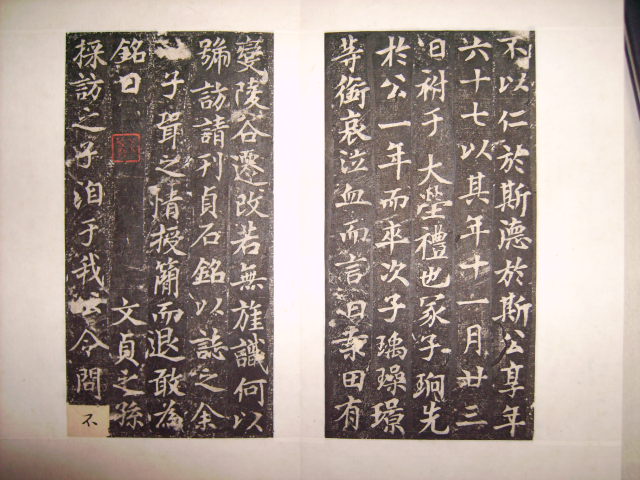 不以仁於斯德於斯公享年
六十七以其年十一月廿三
日祔于 大塋禮也冢子珦先
於公一年而卒次子瑀璪璟
等銜哀泣血而言曰桒田有
變陵谷遷改若無旌識何以
號訪請刊貞石銘以誌之余
子聟之情授簡而退敢為
銘曰 文貞之孫
採訪之子洎于我公令問
不